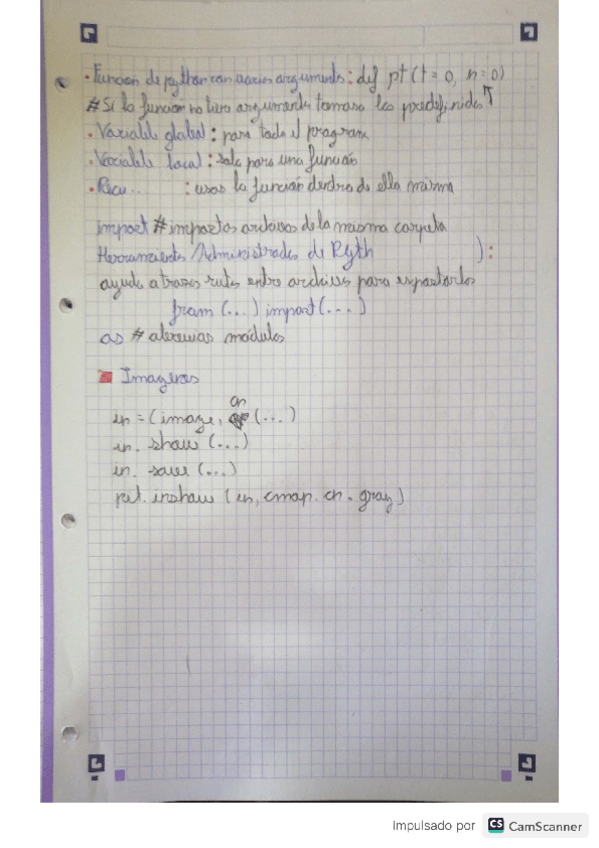 • Función de python con varios argumentos: def pt (t = 0, n = 0)
# Si la función no tiene argumentos tomara los predefinidos ↑
• Variable global: para todo el programa
• Variable local: solo para una función
• Recu.. : usas la función dentro de ella misma
import # importas archivos de la misma carpeta
Herramientas /Administrador de Pyth ):
ayuda a trazar rutas entre archivos para exportarlos
from (...) import (...)
as # abrevias módulos
Imagenes
in = (image, (...)
in. show (...)
in. save (...)
plt. imshow (in, cmap. cm. gray)
Impulsado por CS CamScanner